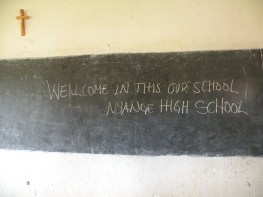 WELLCOME IN THIS OUR SCHOOL!
NYANGE HIGH SCHOOL